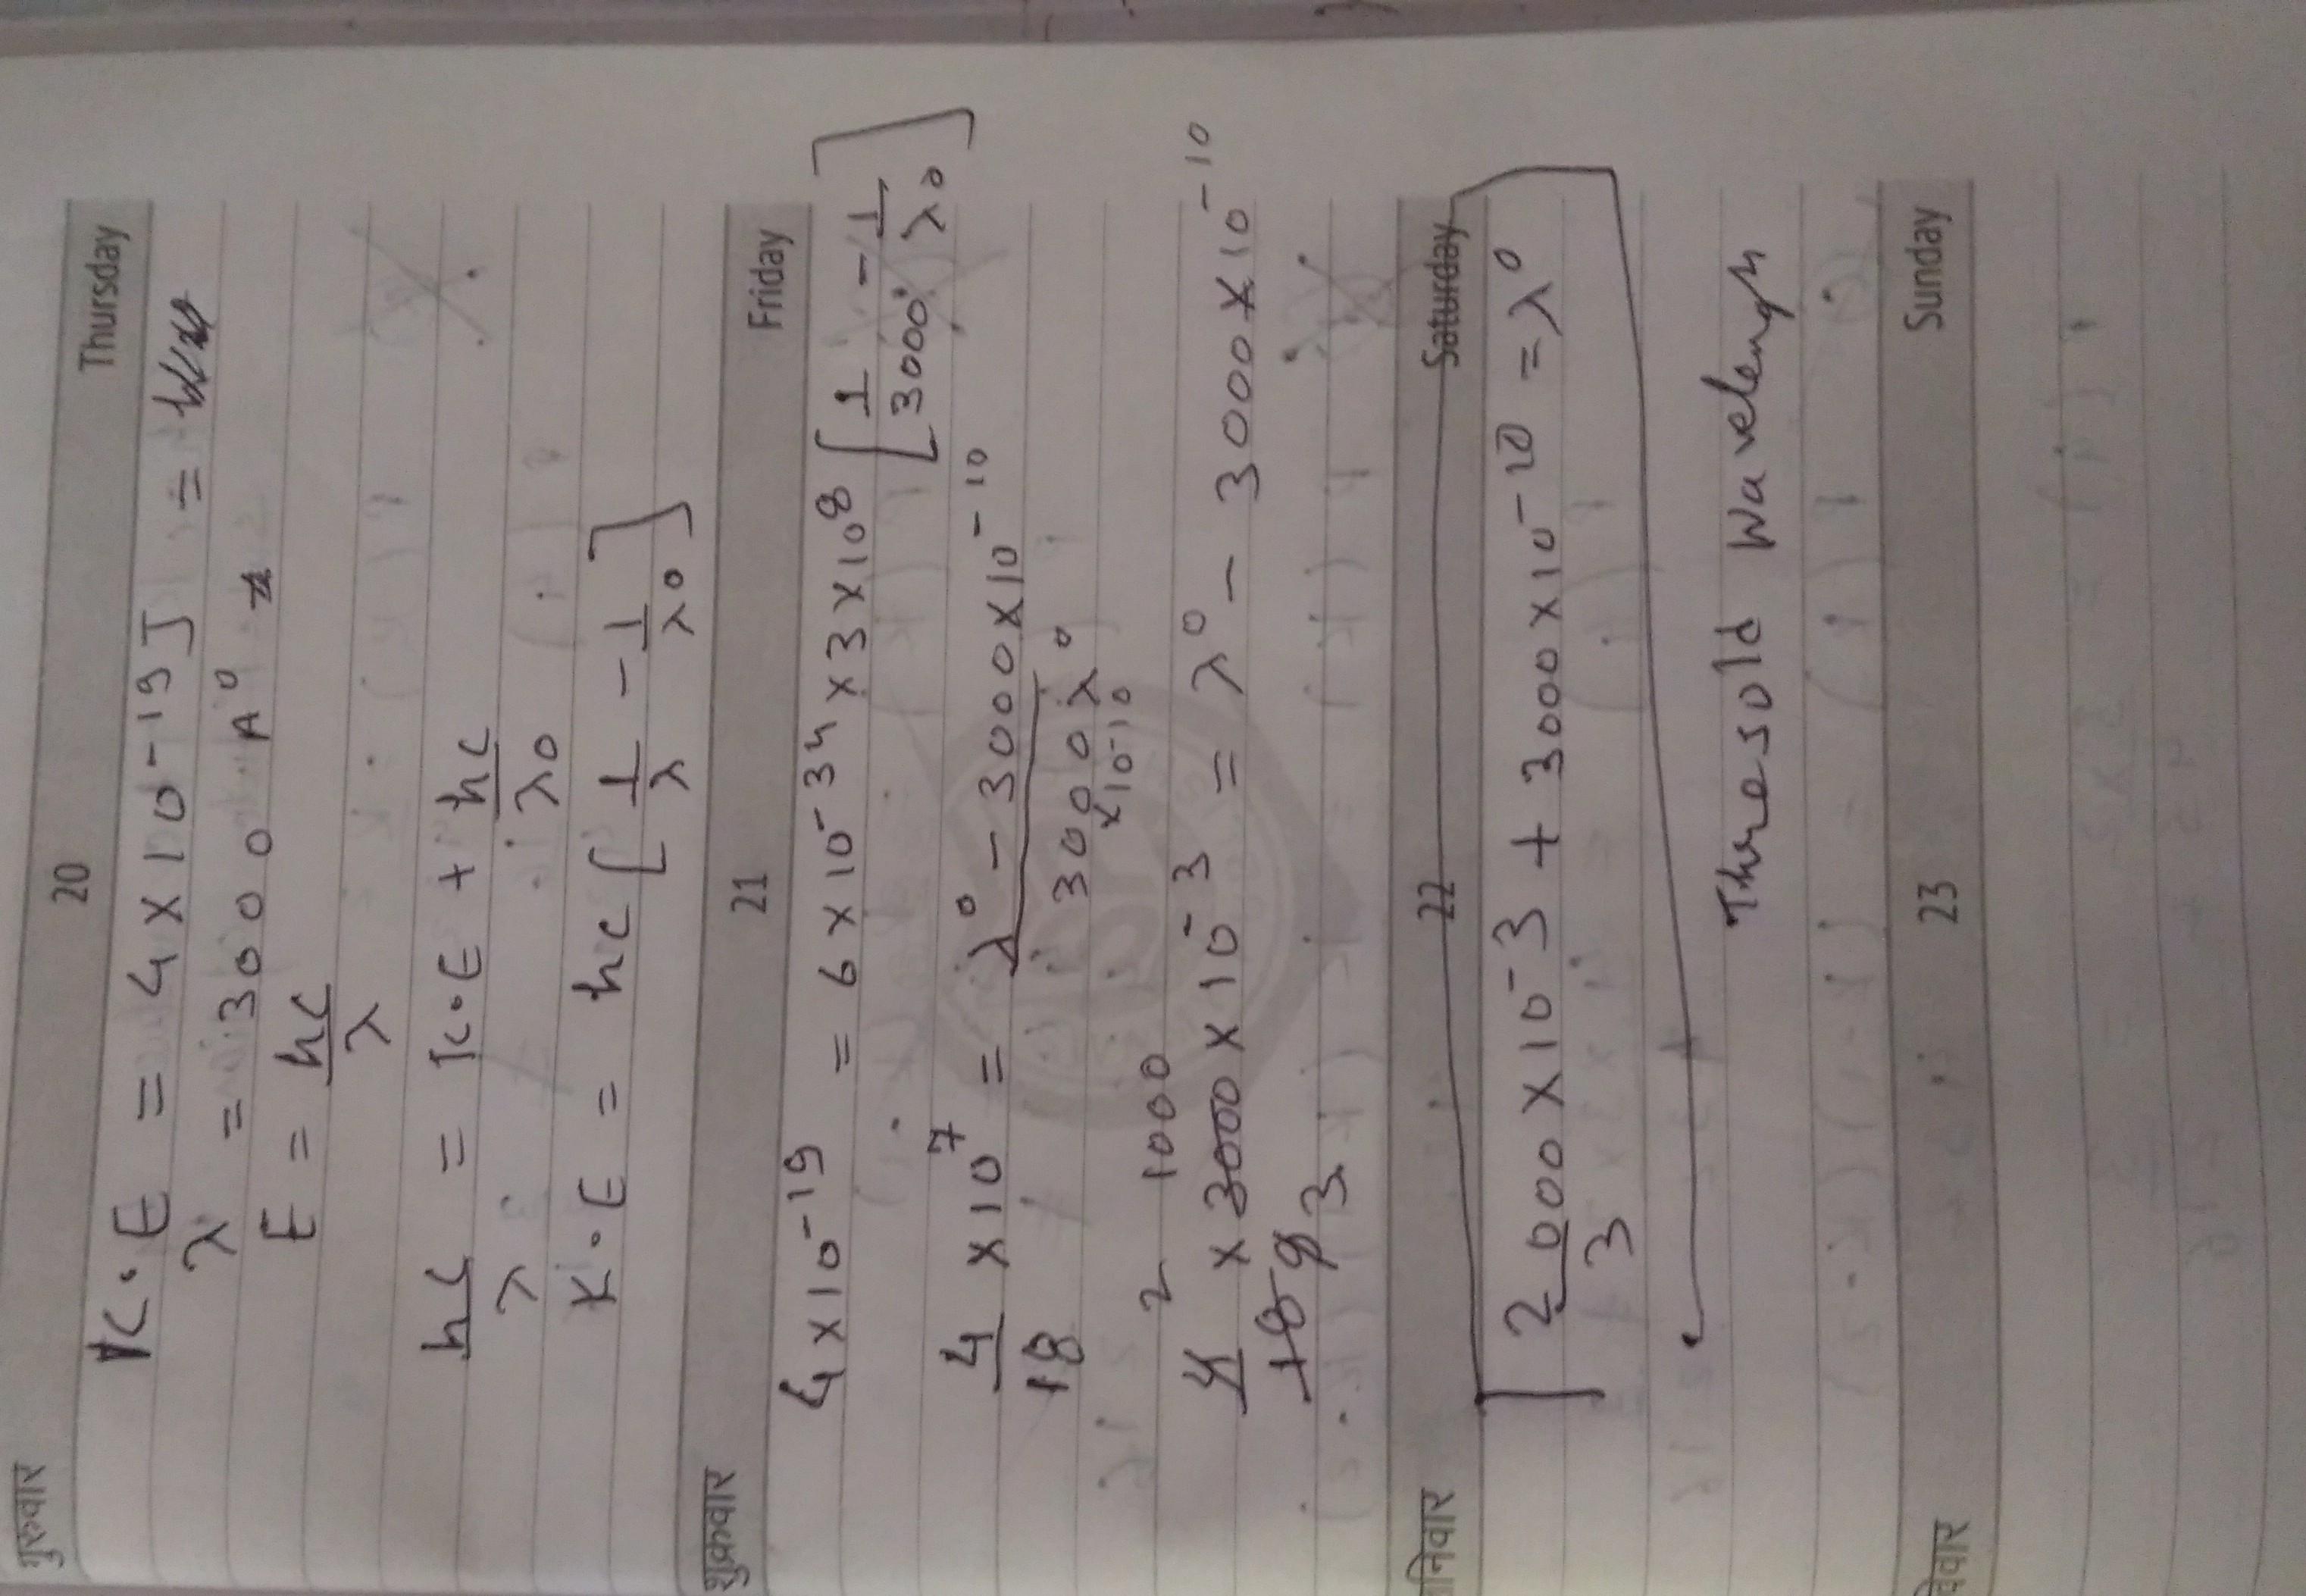 गुरुवार 20 Thursday
K.E = 4 × 10^-19 J =
λ = 3000 A°
E = hc/λ
hc/λ = K.E + hc/λ0
K.E = hc [1/λ - 1/λ0]
शुक्रवार 21 Friday
4×10^-19 = 6×10^-34 ×3×10^8 [1/3000 - 1/λ0]
4/18 ×10^7 = λ° - 3000×10^-10 / 3000λ° ×10^-10
2 1000
4/18 × 3000 × 10^-3 = λ° - 3000×10^-10
9 3
शनिवार 22 Saturday
2000/3 ×10^-3 + 3000×10^-10 = λ°
Thresold Wavelengh
23 Sunday